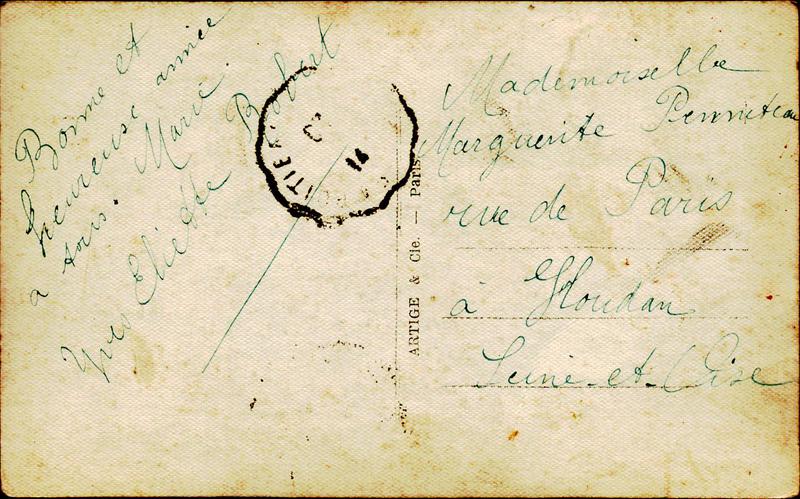 Bonne et
heureuse année
a tous. Marie.
Yves Eliette Robert
ARTIGE & Cie. — Paris
Mademoiselle
Marguerite
rue de Paris
à Houdan
Seine-et-Oise